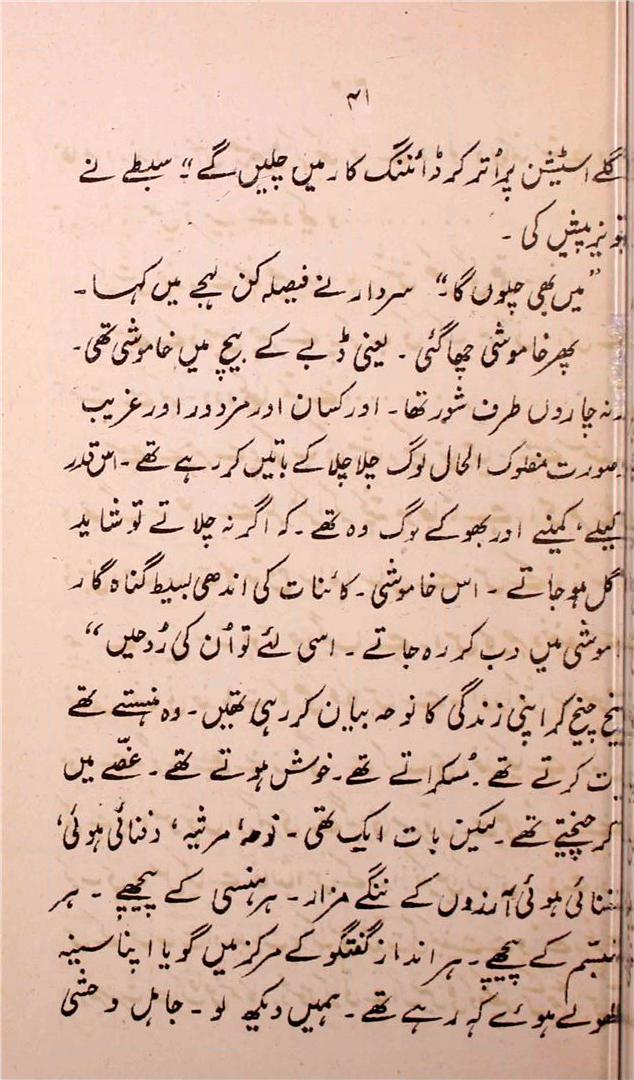 ۴۱
گلے اسٹیشن پر اُتر کر ڈائننگ کار میں چلیں گے“ سبطے نے
تجویز پیش کی۔
”میں بھی چلوں گا“ سردار نے فیصلہ کن لہجے میں کہا۔
پھر خاموشی چھا گئی۔ یعنی ڈبے کے بیچ میں خاموشی تھی۔
رنہ چاروں طرف شور تھا۔ اور کسان اور مزدور اور غریب
صورت مفلوک الحال لوگ چلا چلا کے باتیں کر رہے تھے۔ اس قدر
کیلے، کمینے اور بھوکے لوگ وہ تھے۔ کہ اگر نہ چلاتے تو شاید
گل ہو جاتے۔ اس خاموشی۔ کائنات کی اندھی بسیط گناہ گار
اموشی میں دب کر رہ جاتے۔ اسی لئے تو اُن کی رُوحیں“
یخ چیخ کر اپنی زندگی کا نوحہ بیان کر رہی تھیں۔ وہ ہنستے تھے
ت کرتے تھے۔ مُسکراتے تھے۔ خوش ہوتے تھے۔ غصّے میں
کر چیختے تھے۔ لیکن بات ایک تھی۔ نوحہ، مرثیہ، دفنائی ہوئی،
فنائی ہوئی آرزوں کے ننگے مزار۔ ہر ہنسی کے پیچھے۔ ہر
تبسّم کے پیچھے۔ ہر انداز گفتگو کے مرکز میں گویا اپنا سینہ
کھولے ہوئے کہہ رہے تھے۔ ہمیں دیکھ لو۔ جاہل وحشی